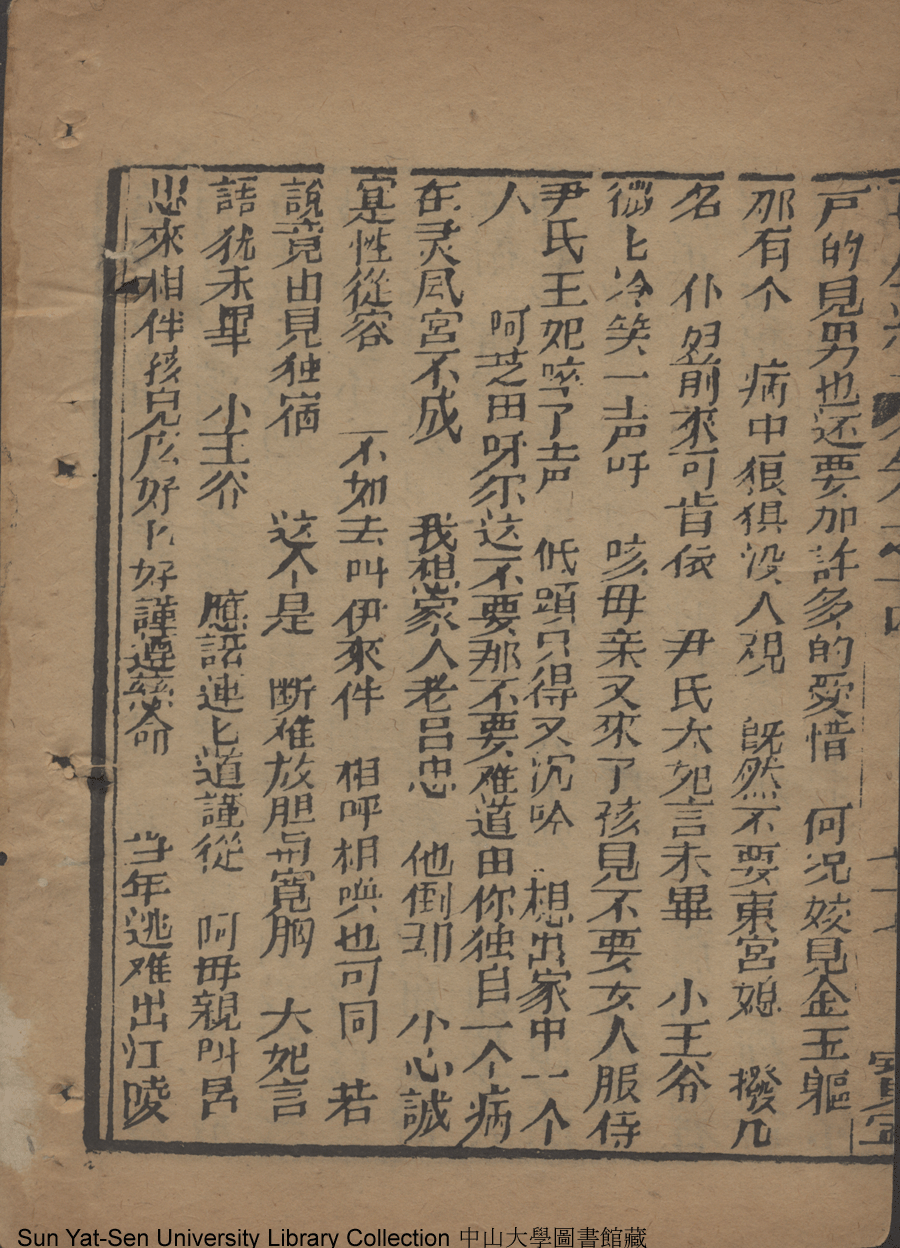 戶的見男也还要加許多的愛惜　何况姟見金玉軀
那有个　病中狼狽没人視　既然不要東宮媳　撥几
名　仆婦前來可肯依　尹氏太妃言未畢　小王爷
微匕冷笑一声吁　咳母亲又來了孩見不要女人服侍
尹氏王妃啐了声　低頭只得又沉吟　想出家中一个
人　呵芝田呀尔这不要那不要难道由你独自一个病
在灵凤宮不成　我想家人老吕忠　他倒却　小心誠
寔性從容　不如去叫伊來伴　相呼相喚也可同　若
說竟由見独宿　这个是　断难放胆与寬胸　大妃言
話犹未畢　小王爷　應諾連匕道謹從　呵毋親叫吕
忠來相伴孩見庅好匕好謹遵慈命　当年逃难出江陵
寳寍
Sun Yat-Sen University Library Collection 中山大學圖書館藏